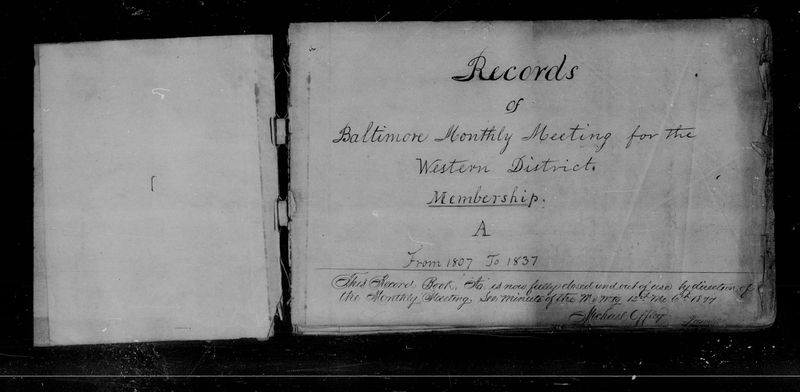 Records
of
Baltimore Monthly Meeting for the
Western District.
Membership.
A
From 1807 To 1837
This Record Book, "A" is now fully closed and out of use by direction of
the Monthly Meeting. See Minute of the Mo Mtg 12th Mo 6th 1877
Michael